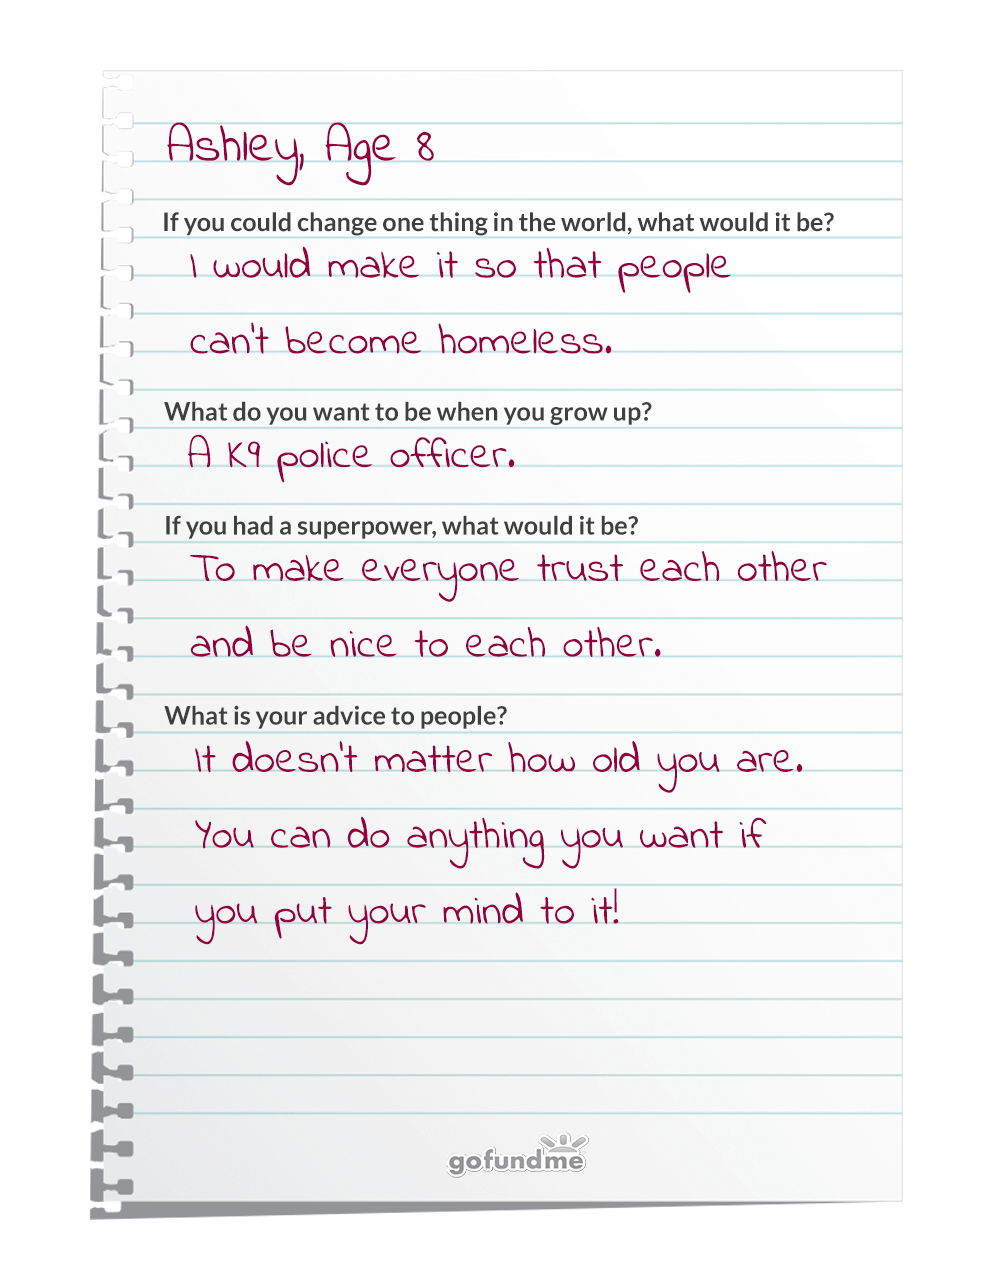 Ashley, Age 8
If you could change one thing in the world, what would it be?
I would make it so that people
can't become homeless.
What do you want to be when you grow up?
A K9 police officer.
If you had a superpower, what would it be?
To make everyone trust each other
and be nice to each other.
What is your advice to people?
It doesn't matter how old you are.
You can do anything you want if
you put your mind to it!
gofundme